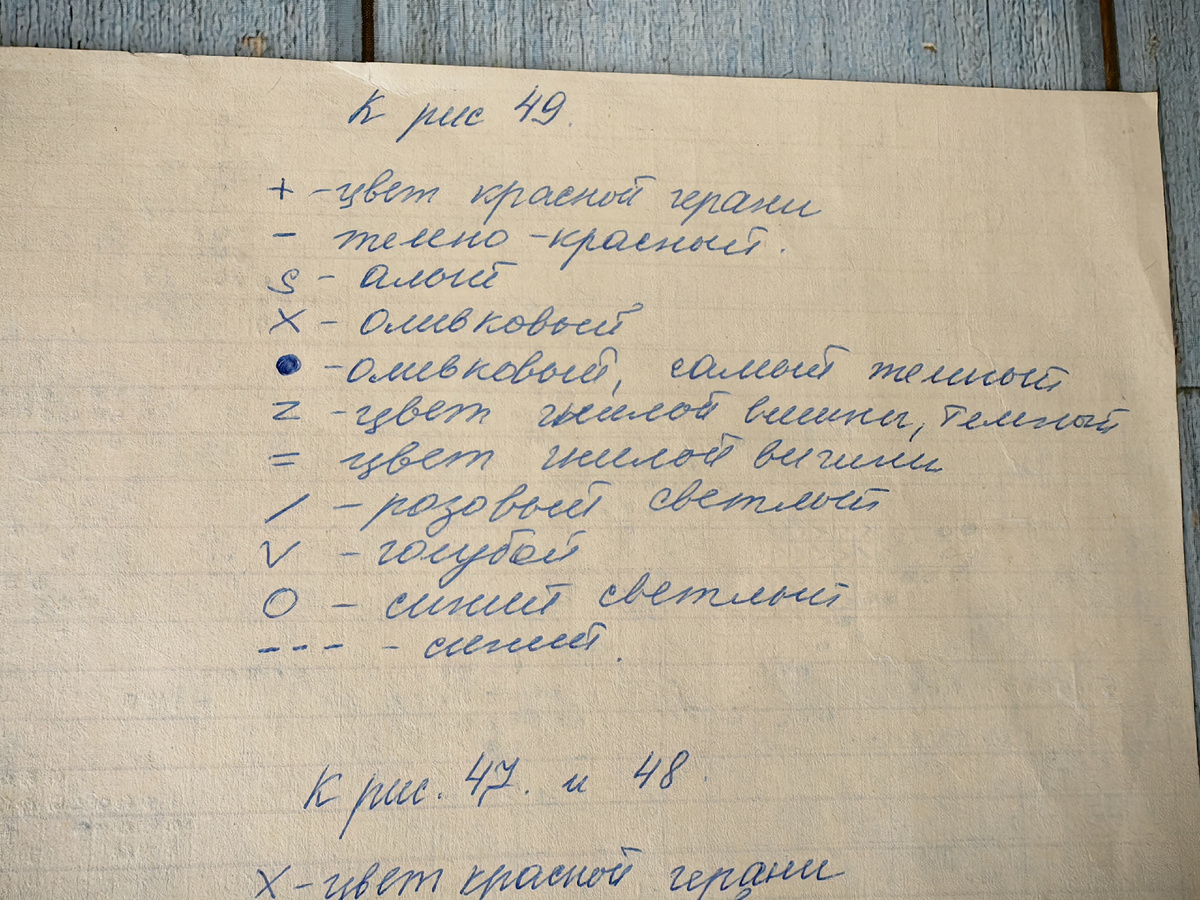 К рис 49.
+ - цвет красной герани
- темно-красный.
S - алый
X - оливковый
● - оливковый, самый темный
Z - цвет гнилой вишни, темный
= цвет гнилой вишни
/ - розовый светлый
V - голубой
O - синий светлый
--- - синий.
К рис. 47. и 48.
X - цвет красной герани